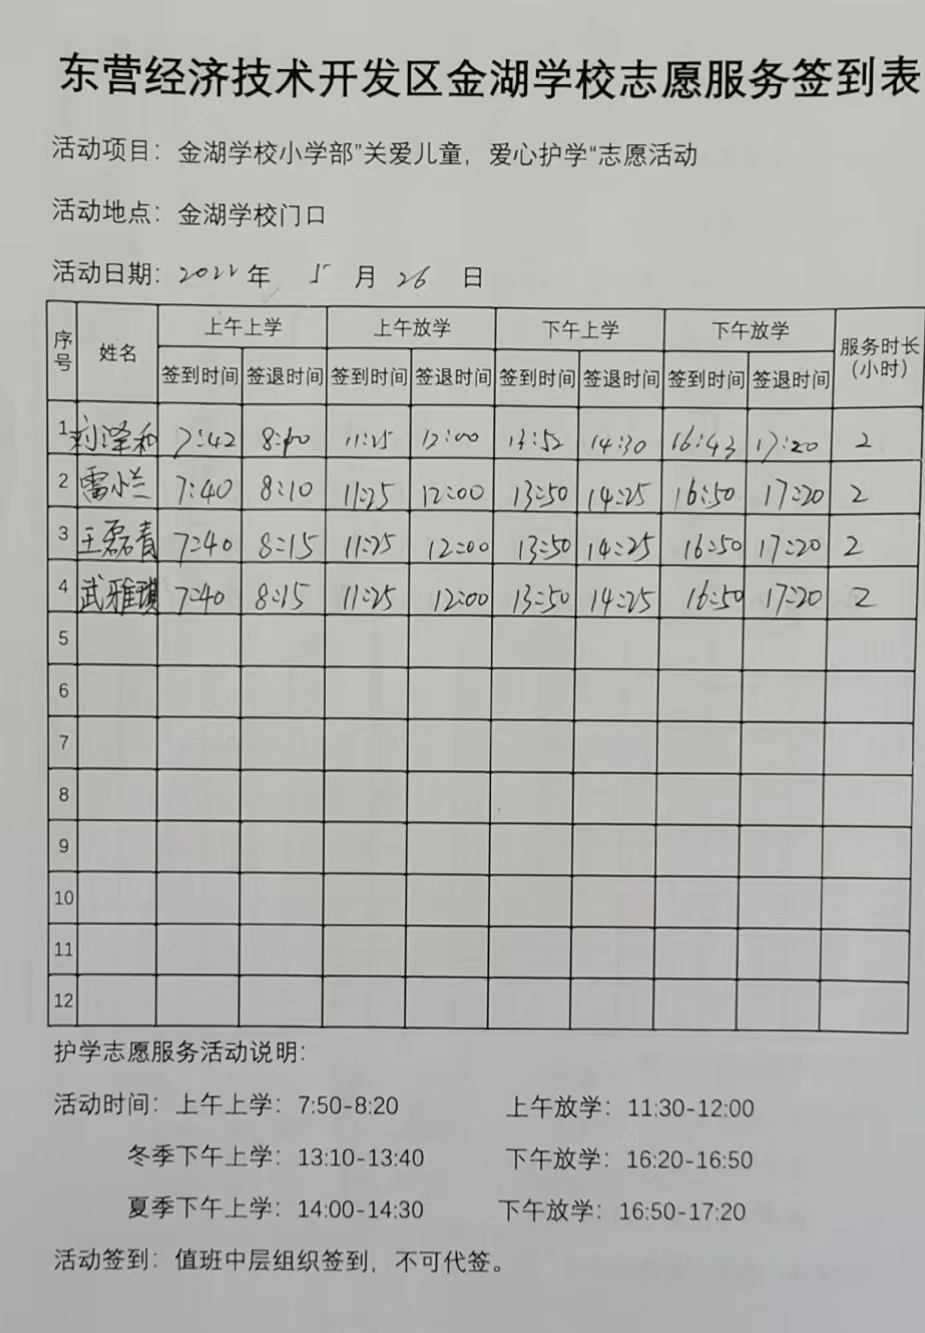 东营经济技术开发区金湖学校志愿服务签到表
活动项目：金湖学校小学部”关爱儿童，爱心护学“志愿活动
活动地点：金湖学校门口
活动日期：2022 年 5 月 26 日
序号 姓名 上午上学 上午放学 下午上学 下午放学 服务时长（小时）
签到时间 签退时间 签到时间 签退时间 签到时间 签退时间 签到时间 签退时间
1 刘泽和 7:42 8:10 11:25 12:00 13:52 14:30 16:43 17:20 2
2 雷小兰 7:40 8:10 11:25 12:00 13:50 14:25 16:50 17:20 2
3 王磊青 7:40 8:15 11:25 12:00 13:50 14:25 16:50 17:20 2
4 武雅琪 7:40 8:15 11:25 12:00 13:50 14:25 16:50 17:20 2
5
6
7
8
9
10
11
12
护学志愿服务活动说明：
活动时间：上午上学：7:50-8:20 上午放学：11:30-12:00
冬季下午上学：13:10-13:40 下午放学：16:20-16:50
夏季下午上学：14:00-14:30 下午放学：16:50-17:20
活动签到：值班中层组织签到，不可代签。